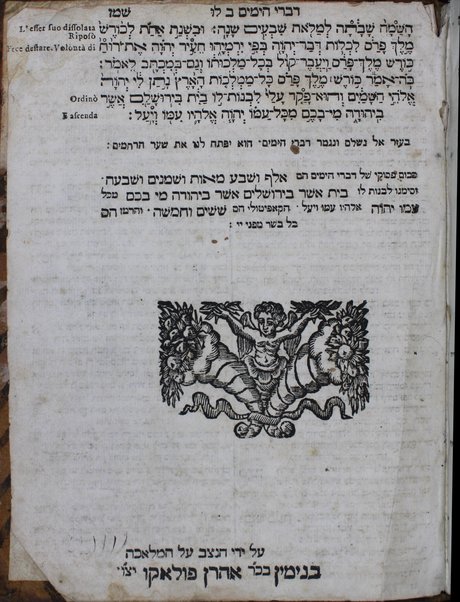 דברי הימים ב לו
שמז
הָשַּׁמָּה שָׁבָתָה לְמַלֹּאת שִׁבְעִים שָׁנָה: וּבִשְׁנַת אַחַת לְכוֹרֶשׁ
מֶלֶךְ פָּרַס לִכְלוֹת דְּבַר יְהוָה בְּפִי יִרְמְיָהוּ הֵעִיר יְהוָה אֶת רוּחַ
כּוֹרֶשׁ מֶלֶךְ פָּרַס וַיַּעֲבֶר קוֹל בְּכָל מַלְכוּתוֹ וְגַם בְּמִכְתָּב לֵאמֹר:
כֹּה אָמַר כּוֹרֶשׁ מֶלֶךְ פָּרַס כָּל מַמְלְכוֹת הָאָרֶץ נָתַן לִי יְהוָה
אֱלֹהֵי הַשָּׁמַיִם וְהוּא פָקַד עָלַי לִבְנוֹת לוֹ בַיִת בִּירוּשָׁלִַם אֲשֶׁר
בִּיהוּדָה מִי בָכֶם מִכָּל עַמּוֹ יְהוָה אֱלֹהָיו עִמּוֹ וְיָעַל:
L'esser suo dissolata
Riposò
Free destare. Volontà di
Ordinò
E ascenda
בעזר אל נשלם ונגמר דברי הימים. הוא יפתח לנו את שער הרחמים:
סכום פסוקי של דברי הימים הם אלף ושבע מאות וששים ושבעה.
וסימנו לבנות לו בית אשר בירושלים אשר ביהודה מי בכם מכל
עמו יהוה אלהיו עמו ויעל. הקאפיטולי הם ששים וחמשה. הם
בל בשר מפני יי:
על ידי הנצב על המלאכה
בנימין בכ"ר אהרן פולאקו יצ"ו